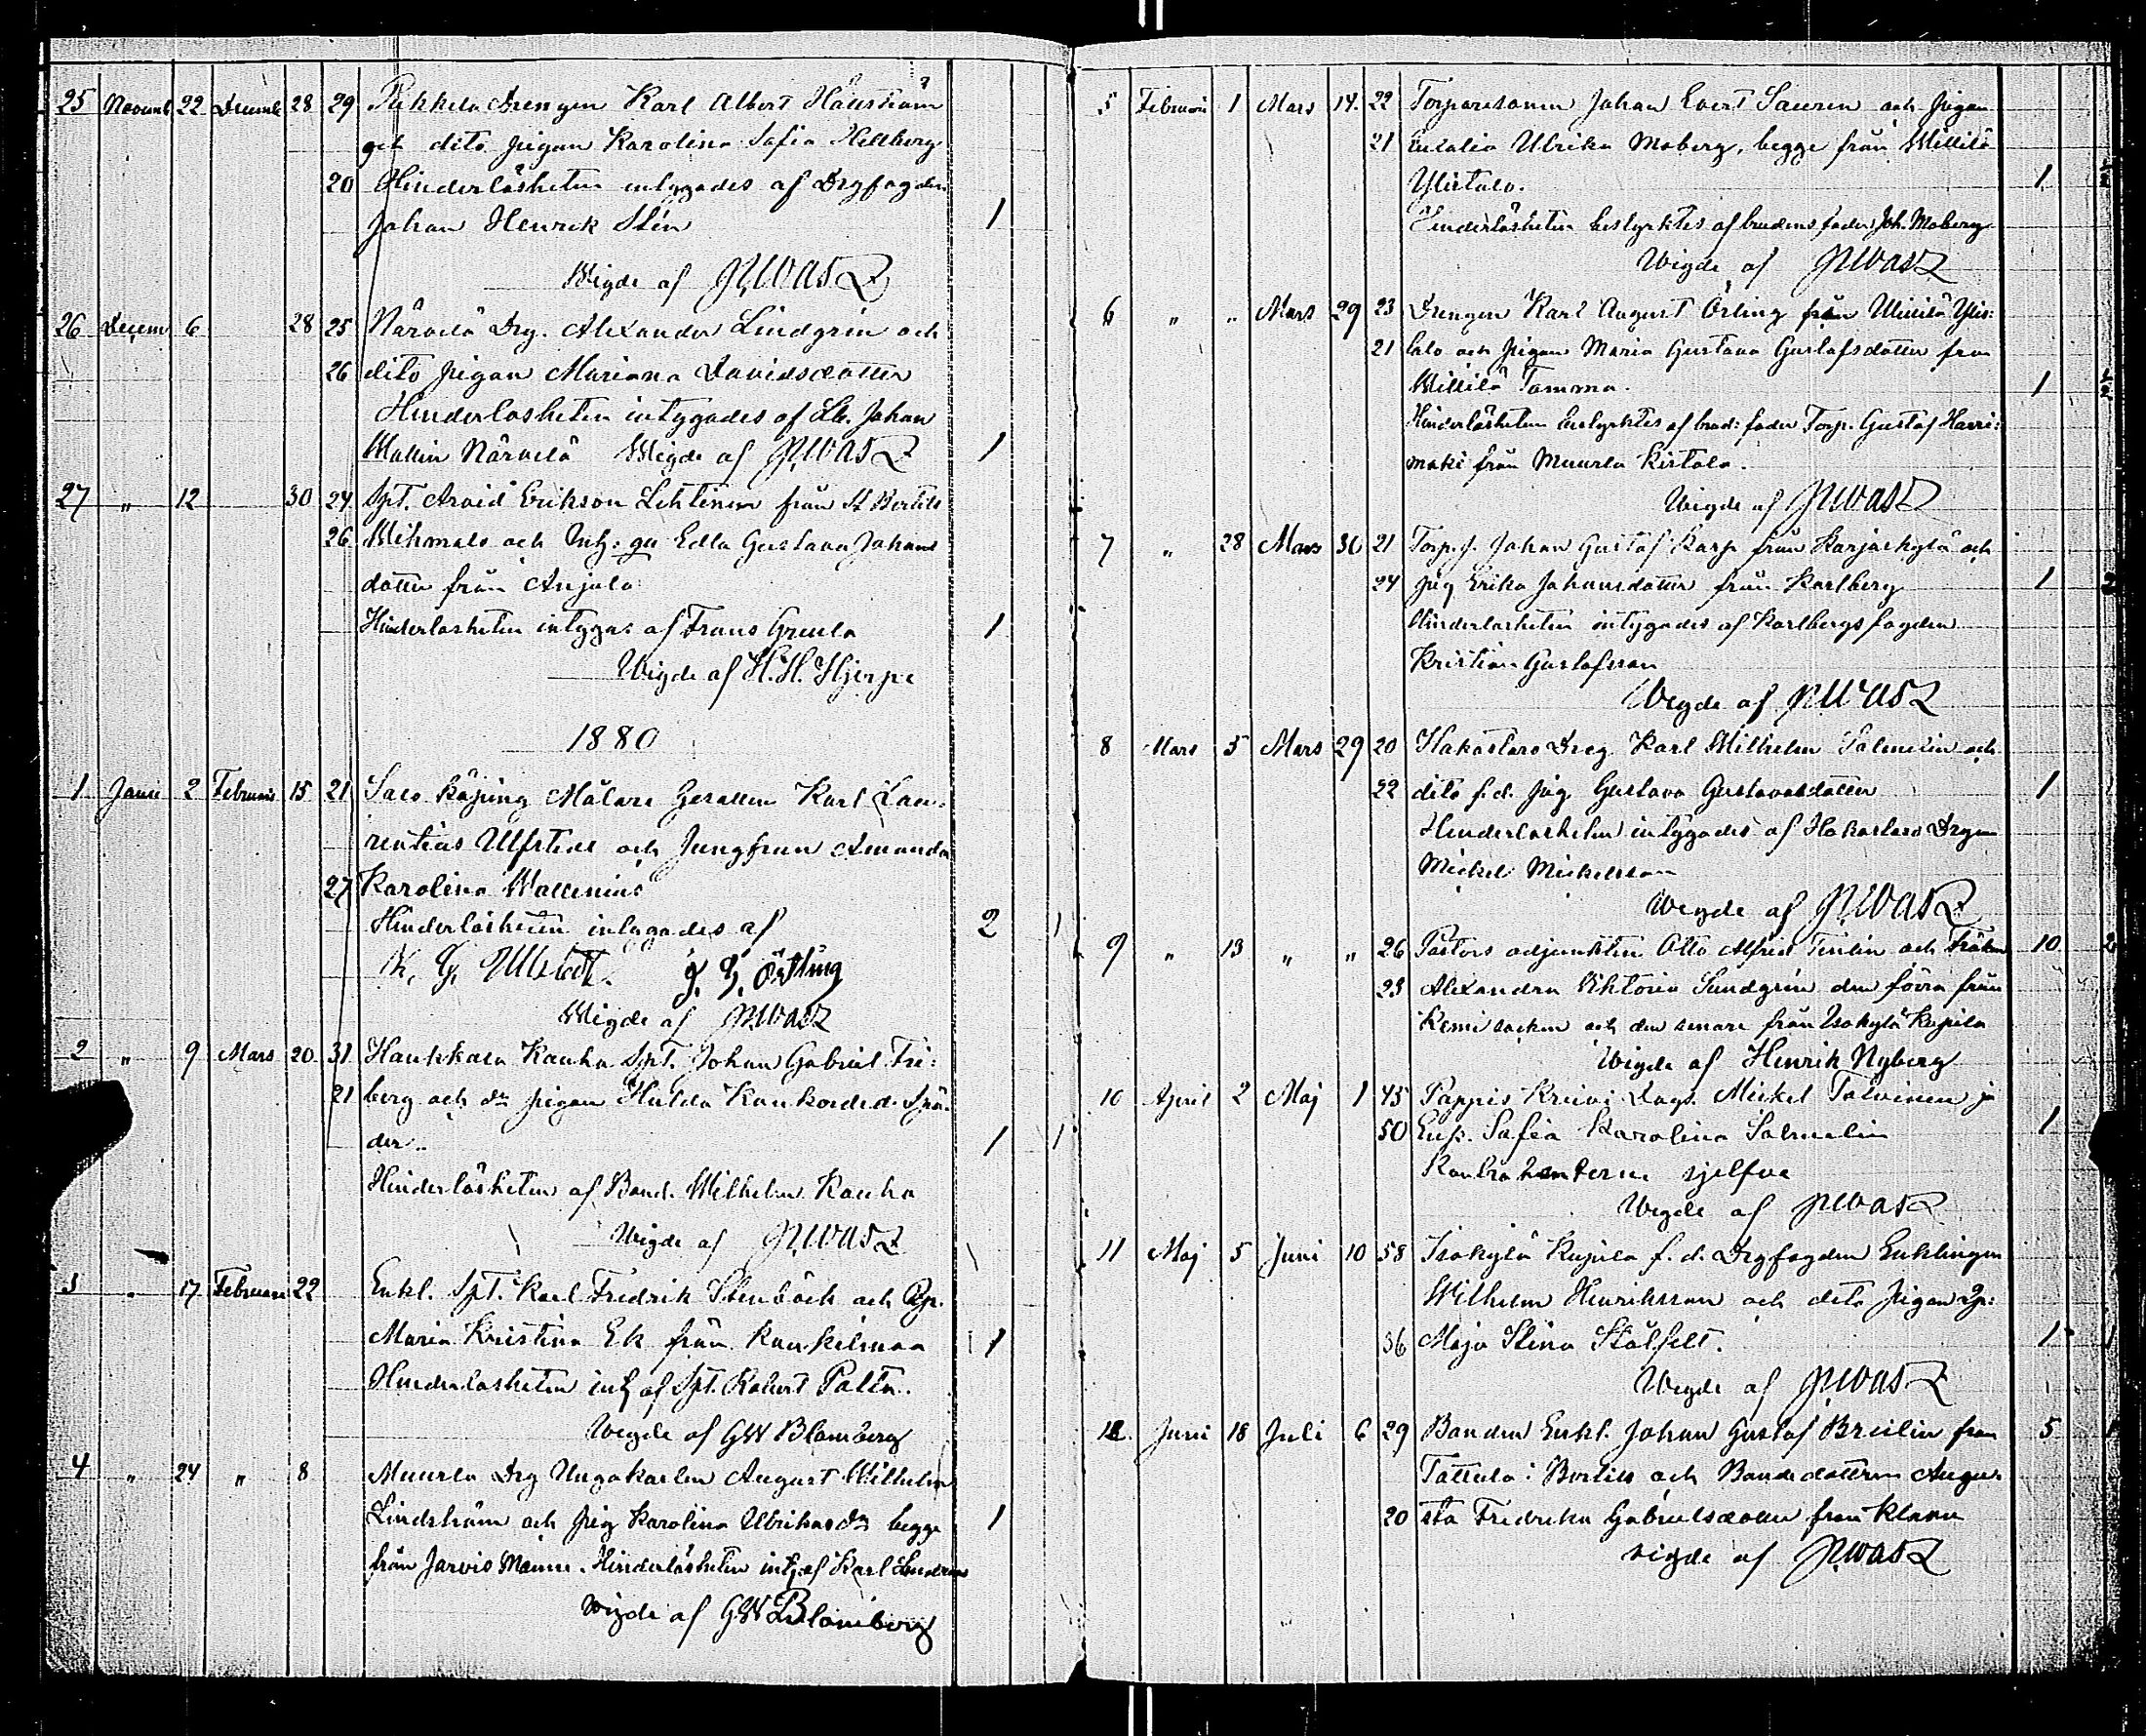 25 Novemb 22 Decemb 28 29 Pukkila Drengen Karl Albert Hällström
och dito pigan Karolina Sofia Hellberg
20 Hinderlösheten intygades af Drgfogden
Johan Henrik Stén 1
Wigde af
26 Decem 6 28 25 Närvelä Drg. Alexander Lindgrén och
26 dito pigan Mariana Davidsdotter
Hinderlösheten intygades af Lb. Johan
Wallin Närvelä Wigde af 1
27 " 12 30 24 Spt. Arvid Erikson Lehtinen från St Bertils
26 och Inh: gu Edla Gustava Johans
dotter från Anjala
Hinderlösheten intygas af Frans Grenla 1
Wigde af H. H. Hjerpe
1880
1 Janu 2 Februari 15 21 Salo köping Målare Gesällen Karl Lau-
rentius Ulfstedt och Jungfrun Amanda
27 Karolina Wallenius
Hinderlösheten intygades af 2 1
K. G. Ulfstedt. J. G. Östling
Wigde af
2 " 9 Mars 20 31 Haukkala Kauha Spt. Johan Gabriel Fri:
21 berg och dn pigan Hulda
der. 1 1
Hinderlösheten af Bond. Wilhelm Kauha
Wigde af
3 " 17 Februari 22 Enkl. Spt. Karl Fredrik Stenbäck och Pig.
Maria Kristina Ek från Kaukilmaa 1
Hinderlösheten int af Spt. Robert Paltta.
Wigde af GW Blomberg
4 " 24 " 8 Muurla Drg Ungakarlen August Wilhelm
Lindström och pig Karolina Ulrikasdr begge 1
från Jarvis Manne. Hinderlösheten int. af Karl
wigde af GW Blomberg
5 Februari 1 Mars 14. 22 Torparesonen Johan Evert Sauren och pigan
21 Eulalia Ulrika Moberg, begge från Willilä
Ylistalo. 1
Hinderlösheten bestyrktes af brudens fader Joh. Moberg
Wigde af
6 " " Mars 29 23 Drengen Karl August Örling från Willilä Ylis:
21 talo och pigan Maria Gustava Gustafsdotter från
Willilä Tamma. 1
Hinderlösheten bestyrktes af brud: fader Torp. Gustaf Harri:
maki från Muurla Kistala.
Wigde af
7 " 28 Mars 30 21 Torp. s. Johan Gustaf Karp från Karjaskylä och
24 pig Erika Johansdotter från Karlberg 1 2
Hinderlösheten intygades af Karlbergs fogden
Kristian Gustafsson
Wigde af
8 Mars 5 Mars 29 20 Hakastaro Dreg Karl Wilhelm Salmelin och
22 dito f.d. pig Gustava Gustavasdotter 1
Hinderlösheten intygades af Hakastaro Drgen
Mickel Mickelsson
Wigde af
9 " 13 " " 26 Pastors adjunkten Otto Alfred Tenlén och Fröken 10 2
23 Alexandra Viktoria Sundgrén den förra från
Kemi socken och den senare från Isokylä Kupila
Wigde af Henrik Nyberg
10 April 2 Maj 1 45 Pappis Krivi Dags. Mickel Talvinen ja
50 Enk. Sofia Karolina Salmelin 1
Kontrahenterne sjelfva
Wigde af
11 Maj 5 Juni 10 58 Isokylä Kupila f. d. Drgfogden Enklingen
Wilhelm Henriksson och dito Pigan
36 Maja Stina Stålfelt. 1 1
Wigde af
12. Juni 18 Juli 6 29 Bonden Enkl. Johan Gustaf Breilin från 5 1
Tattula i Bertils och Bondedottern Augu-
20 sta Fredrika Gabrielsdotter från
vigde af